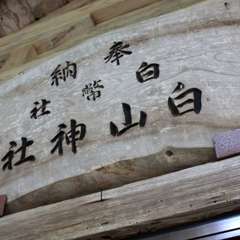 奉納
白幣社
白山神社